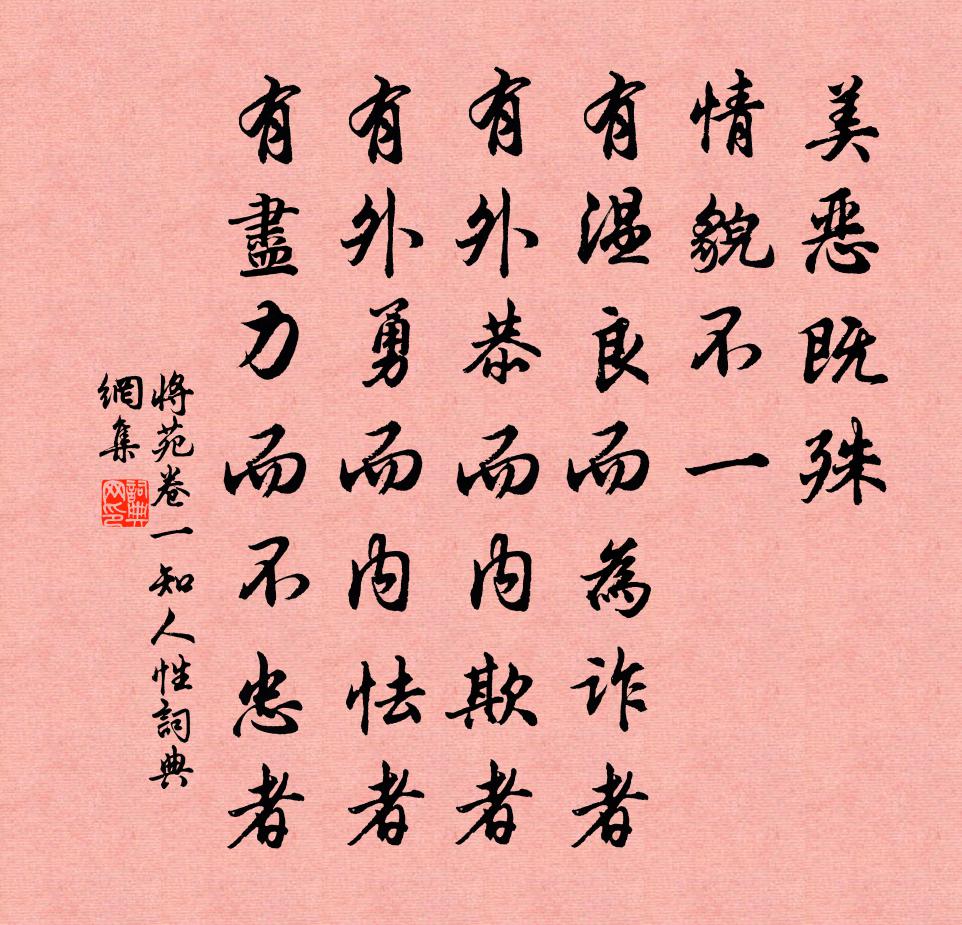 美惡既殊
情貌不一
有温良而為詐者
有外恭而内欺者
有外勇而内怯者
有盡力而不忠者
將苑卷一知人性詞典
網集
詞典
网印